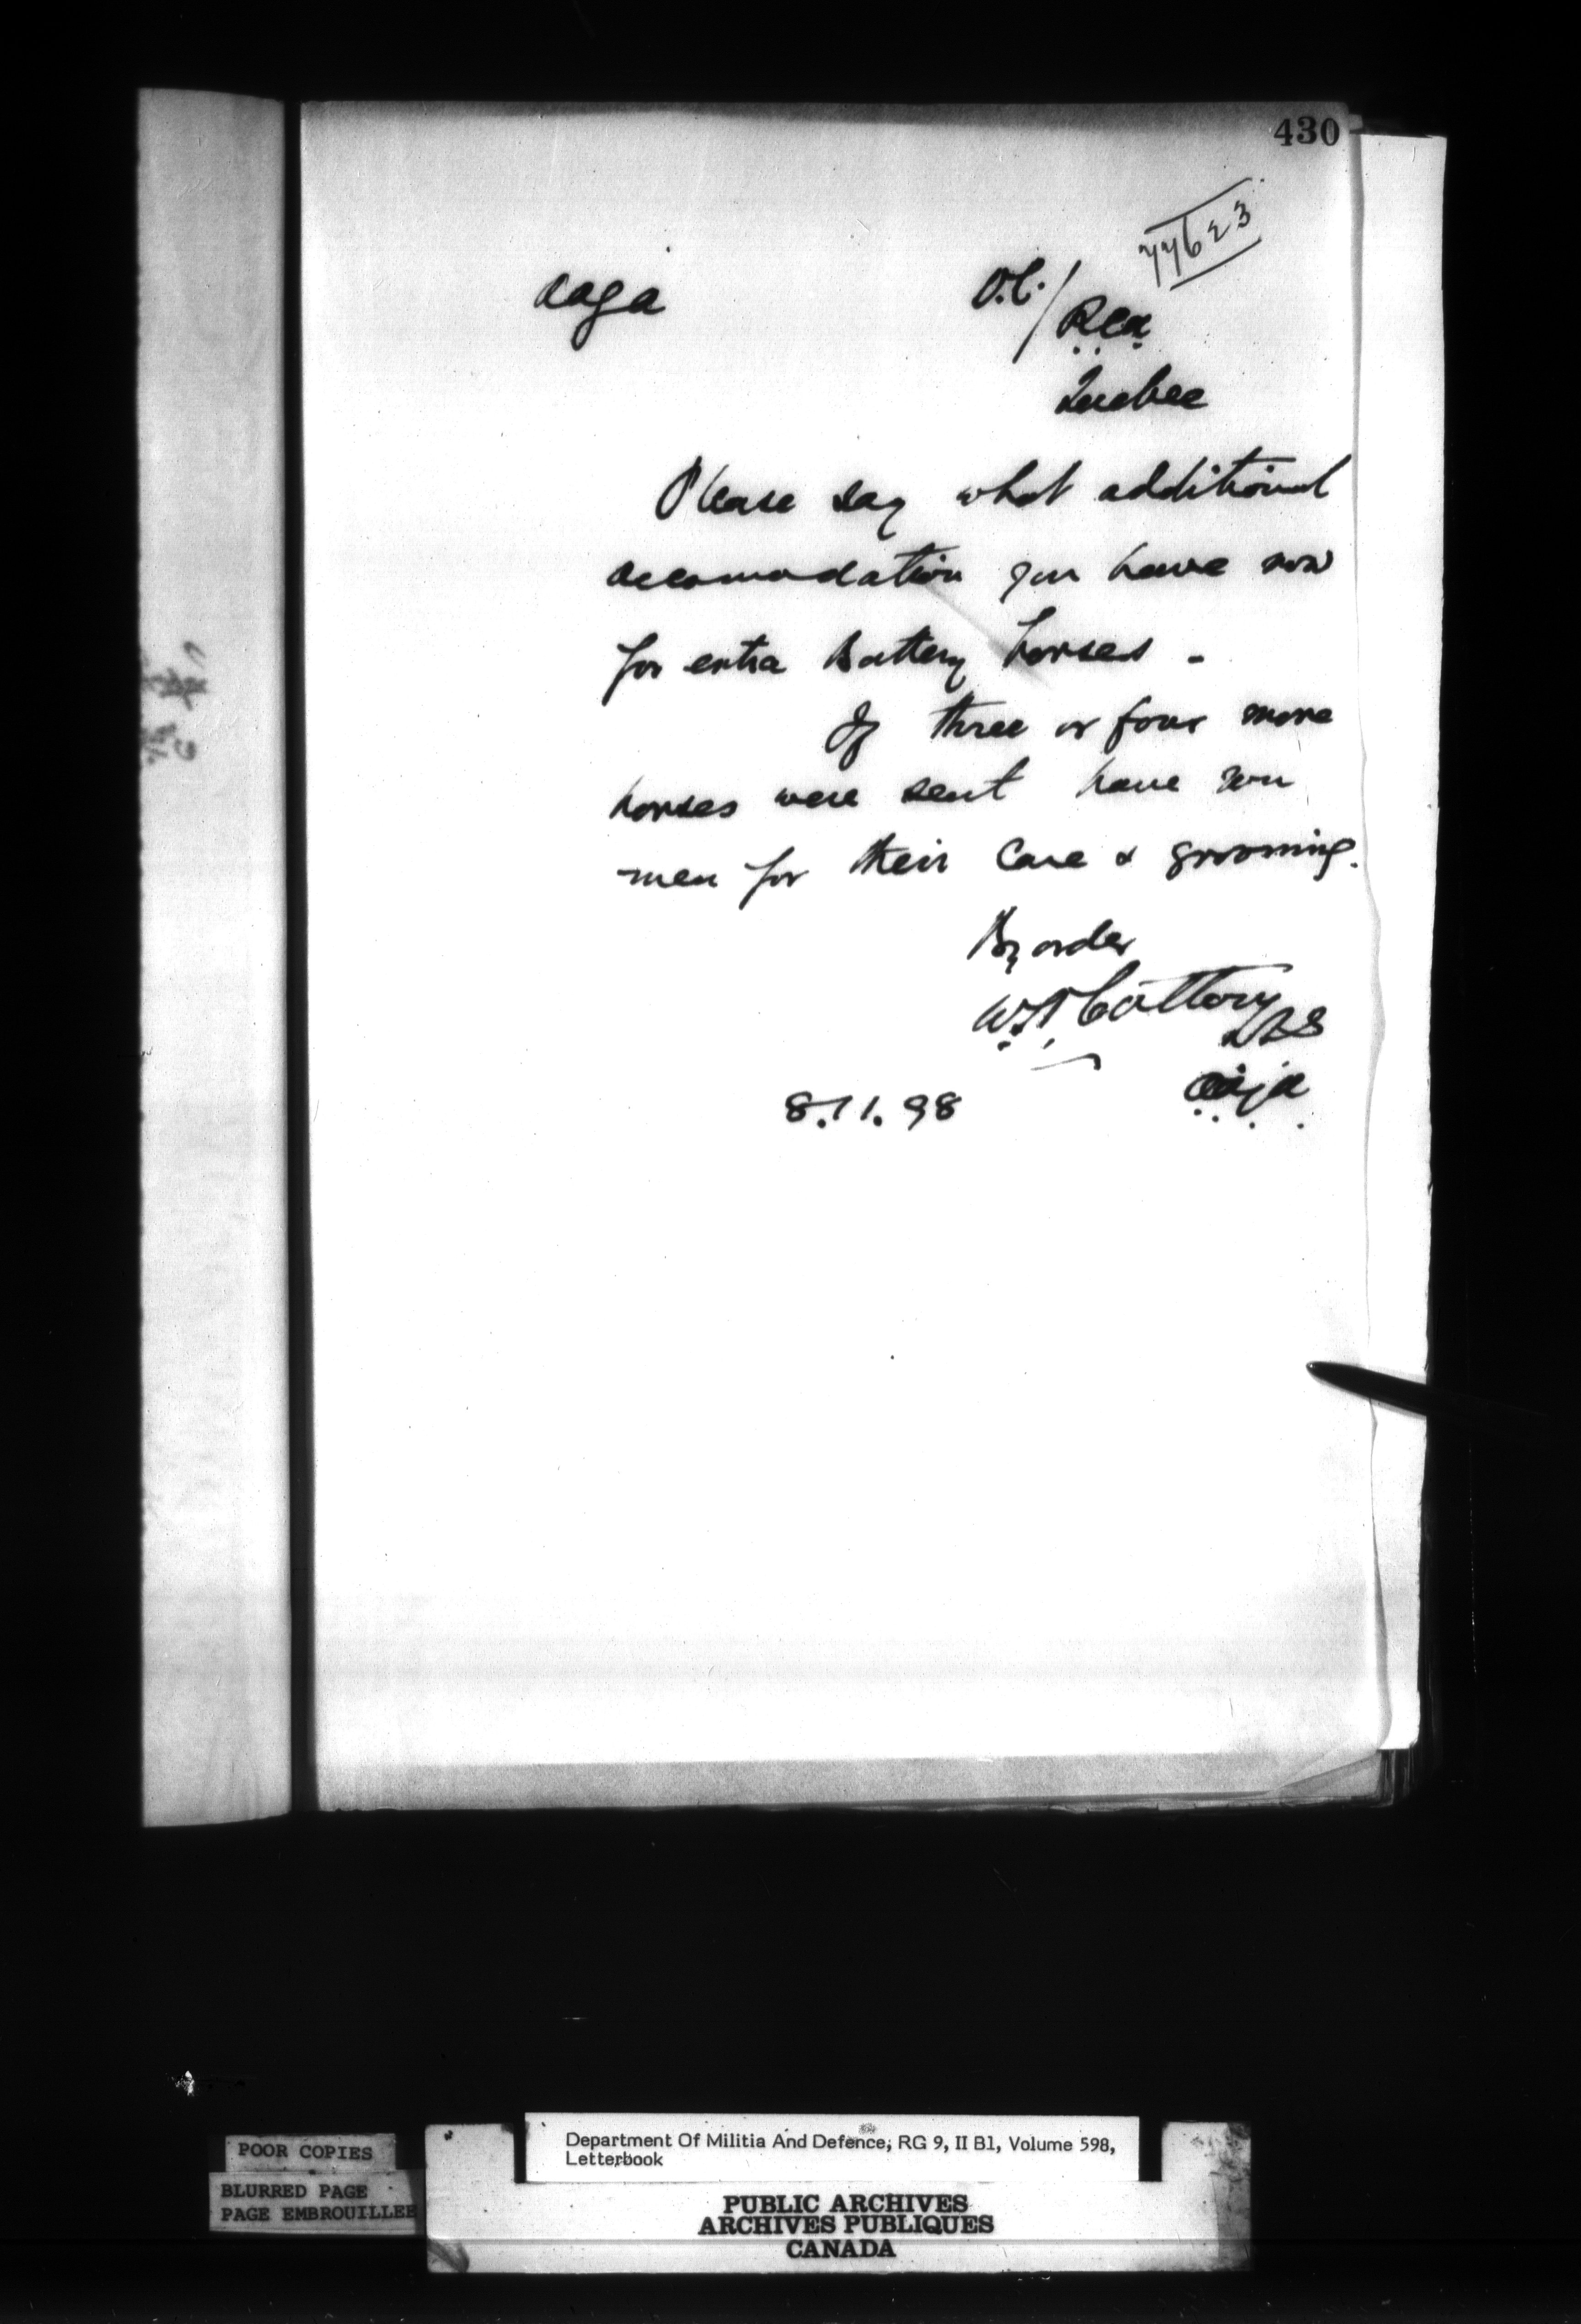 430
77623
aaga
O.C./
R.C.A.
Quebec
Please say what additional
accomodation you have now
for extra Battery horses -
If three or four more
horses were sent have you
men for their Care & grooming.
By order
8.11.98
POOR COPIES
BLURRED PAGE
PAGE EMBROUILLEE
Department Of Militia And Defence, RG 9, II B1, Volume 598,
Letterbook
PUBLIC ARCHIVES
ARCHIVES PUBLIQUES
CANADA